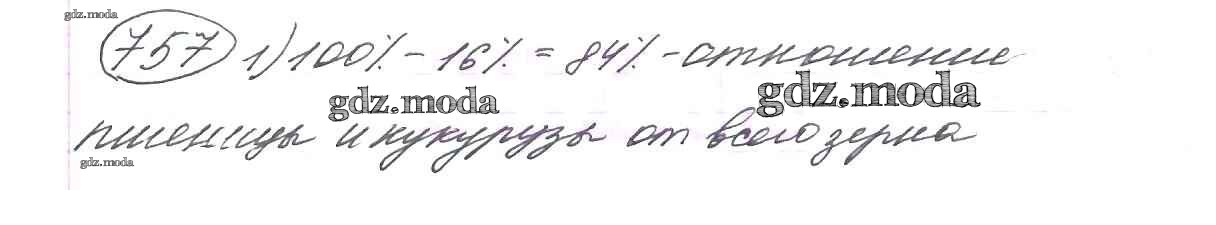 gdz.moda
757 1) 100% - 16% = 84% - отношение
gdz.moda gdz.moda
пшеницы и кукурузы от всего зерна
gdz.moda